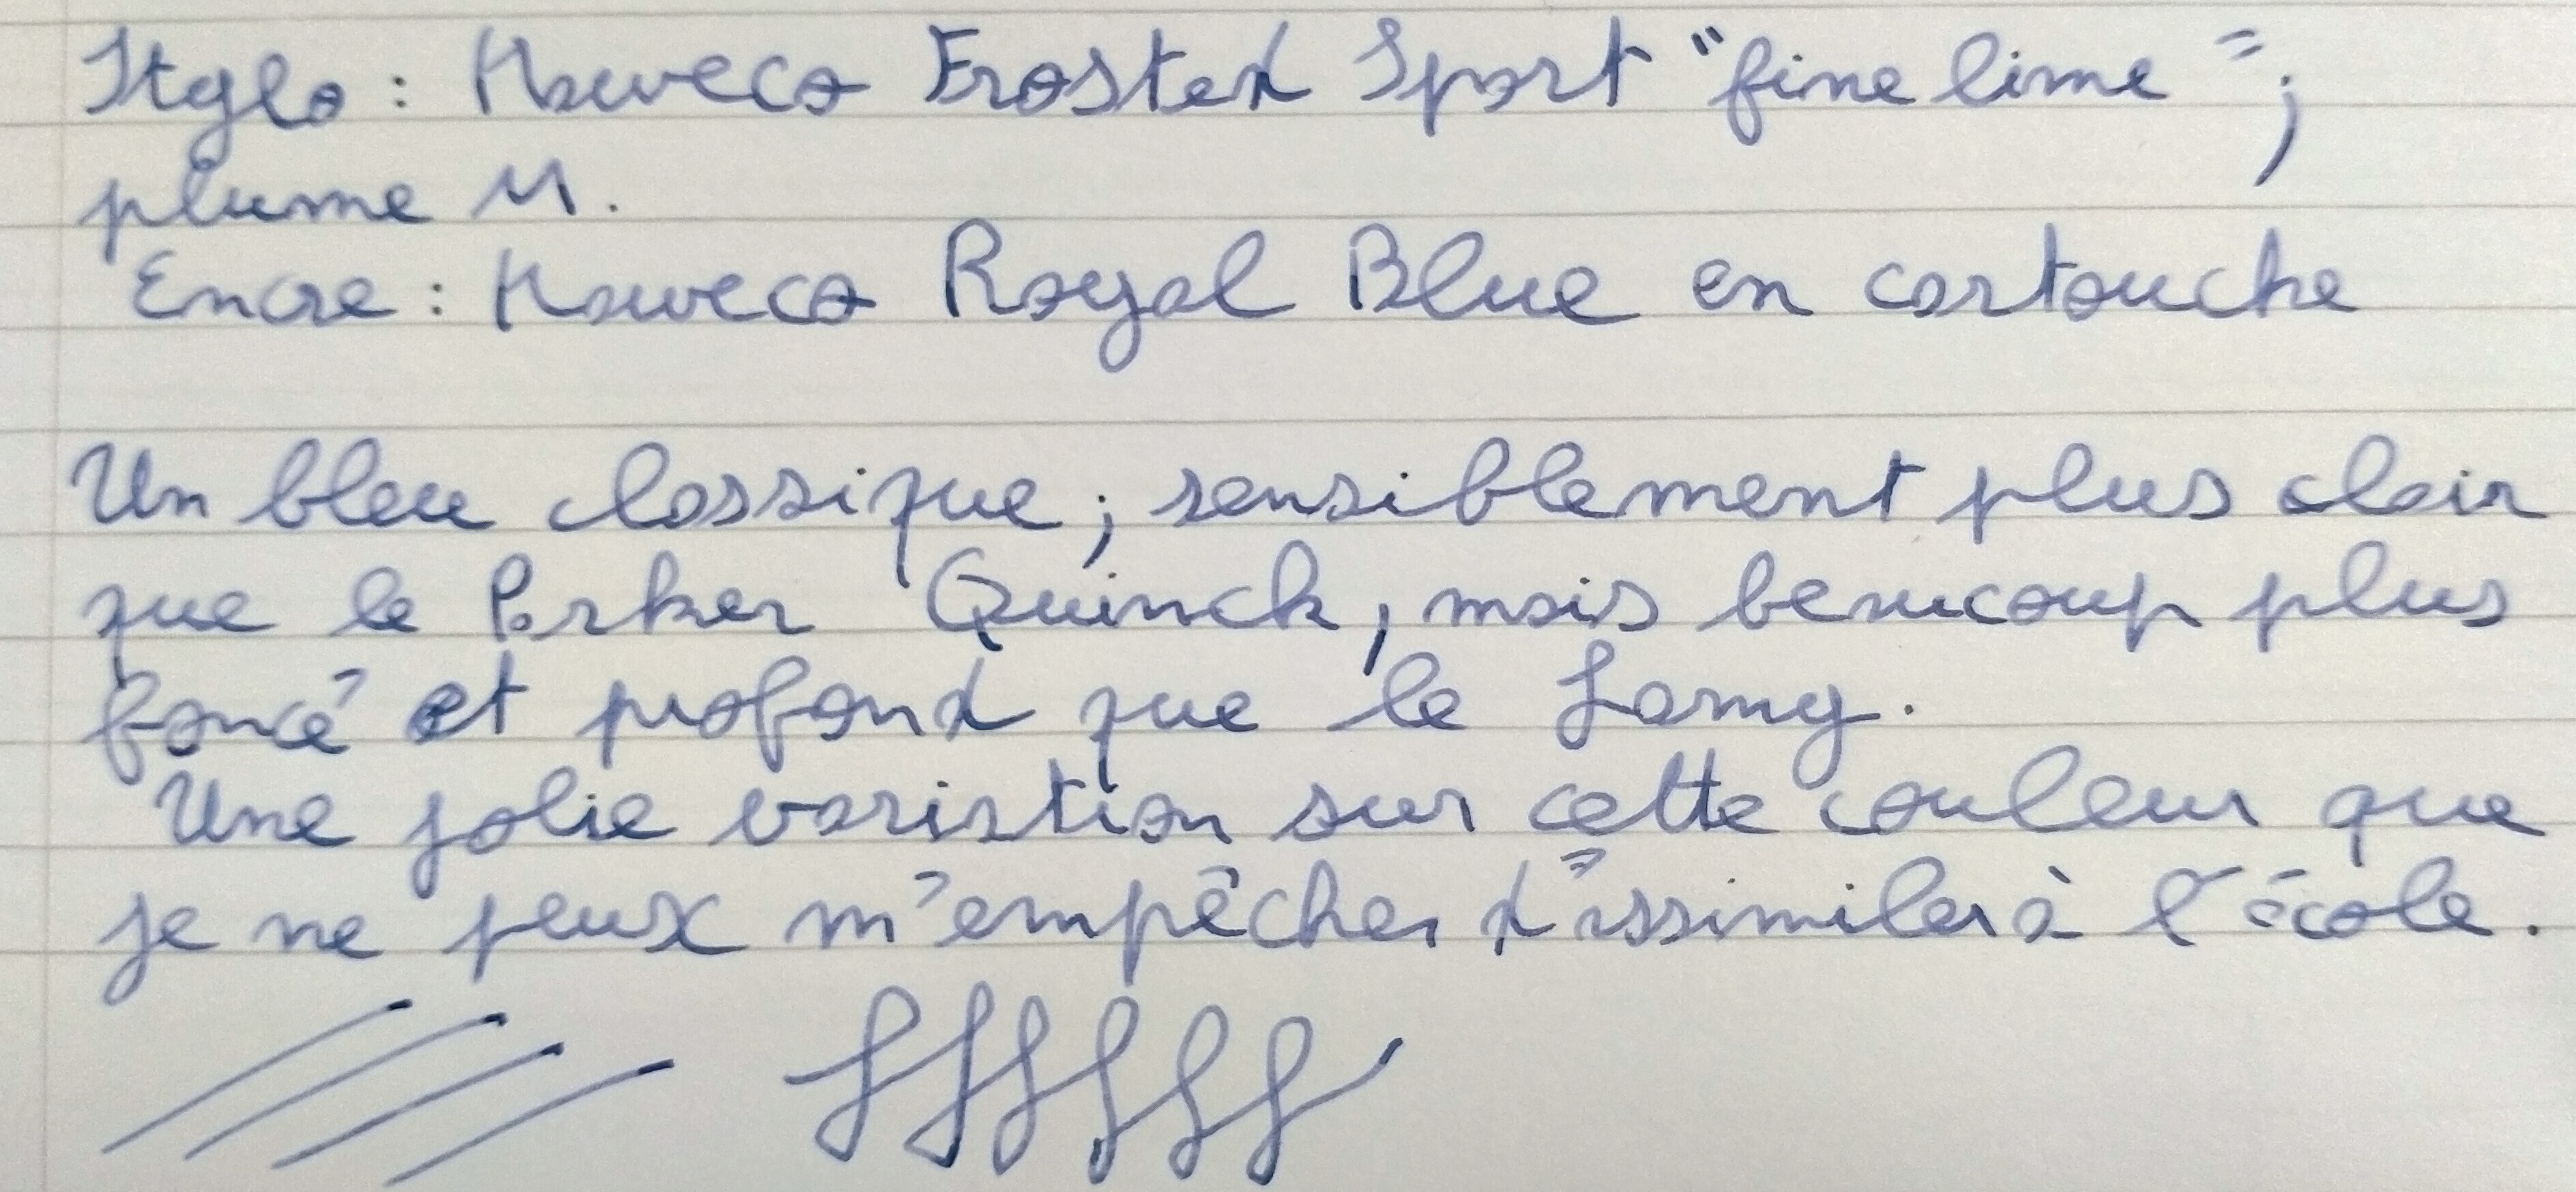 Stylo : Kaweco Frosted Sport "fine lime" ;
plume M.
Encre : Kaweco Royal Blue en cartouche
Un bleu classique ; sensiblement plus clair
que le Parker Quinck, mais beaucoup plus
foncé et profond que le Lamy.
Une jolie variation sur cette couleur que
je ne peux m'empêcher d'assimiler à l'école.